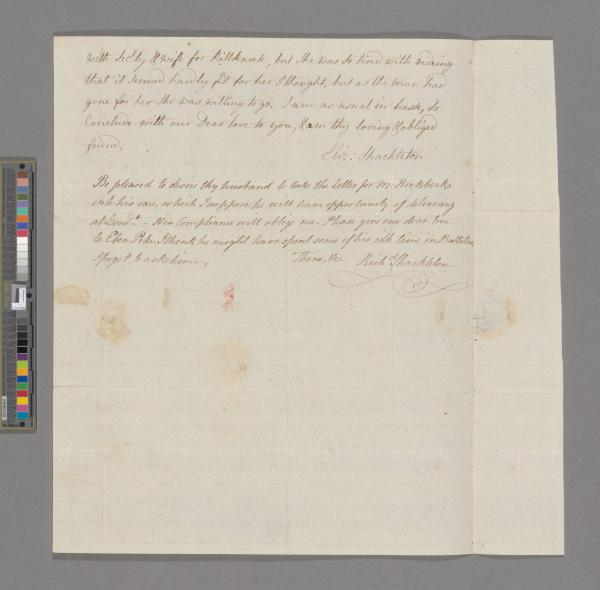 with S: Ely & wife for Killknock, but she was so tired with riding
that it seemed hardly fit for her I thought, but as the man had
gone for her she was willing to go. I am as usual in haste, so
Conclude with our Dear love to you, & am thy loving & obliged
friend,
Eliz: Shackleton
Be pleased to desire thy husband to take the Letter for M. Kirkbeck
into his care, which I suppose he will have opportunity of delivering
at Lond.ⁿ. His Compliance will oblige me. Please give our dear love
to Eben Pike. I think he might have spent some of his idle time in Ballitore
I forgot to ask him.
Thine, &c Rich.ᵈ Shackleton